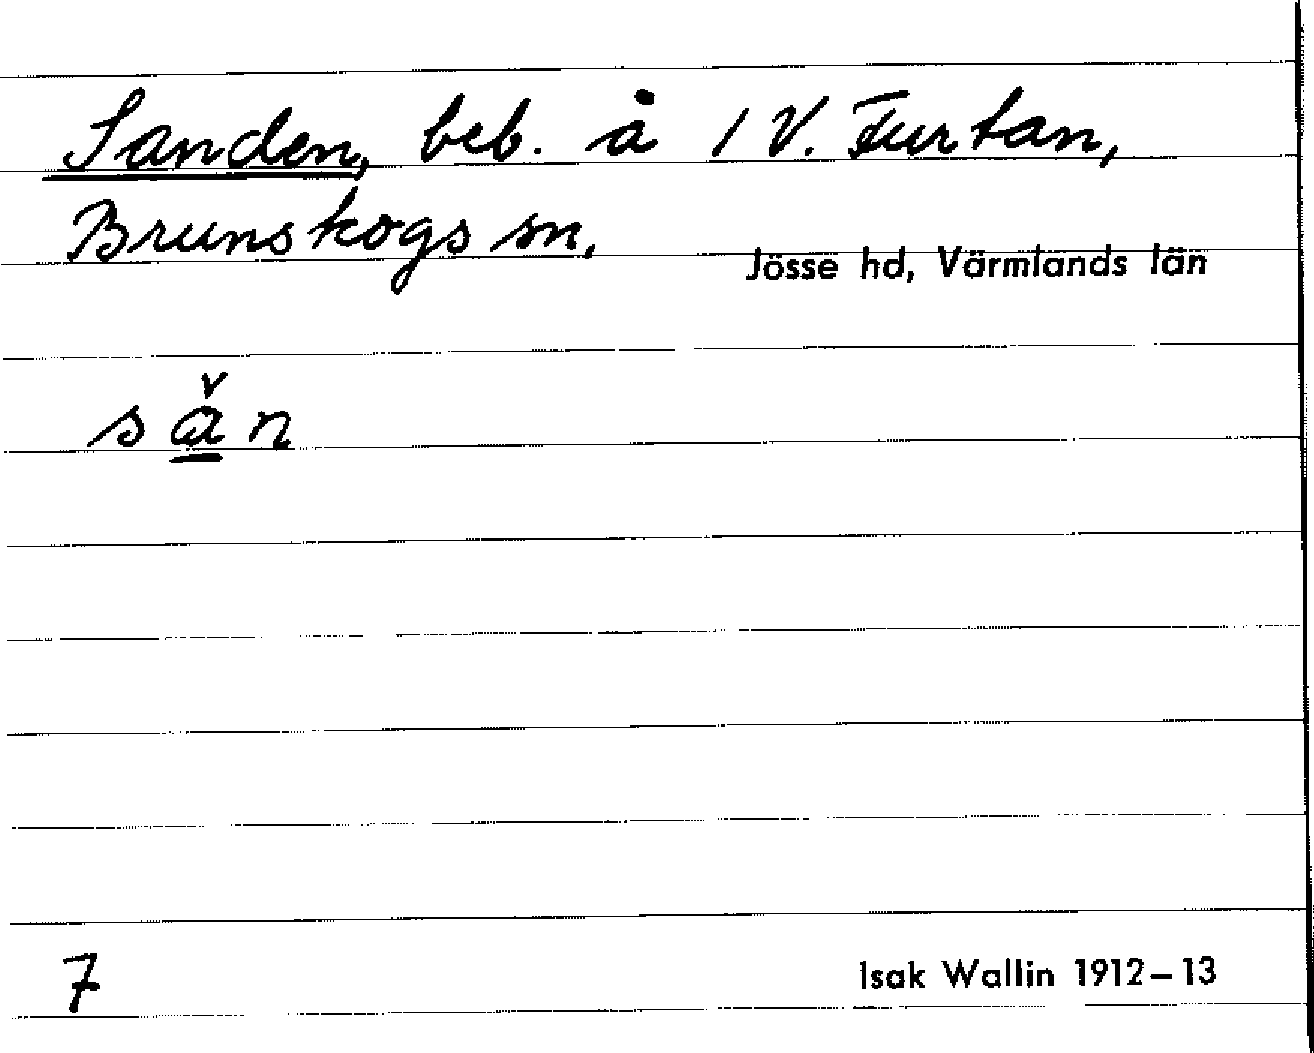 Sanden, beb. å 1 V. Furtan,
Brunskogs sn,
Jösse hd, Värmlands län
sǎ̲n
7
Isak Wallin 1912–13